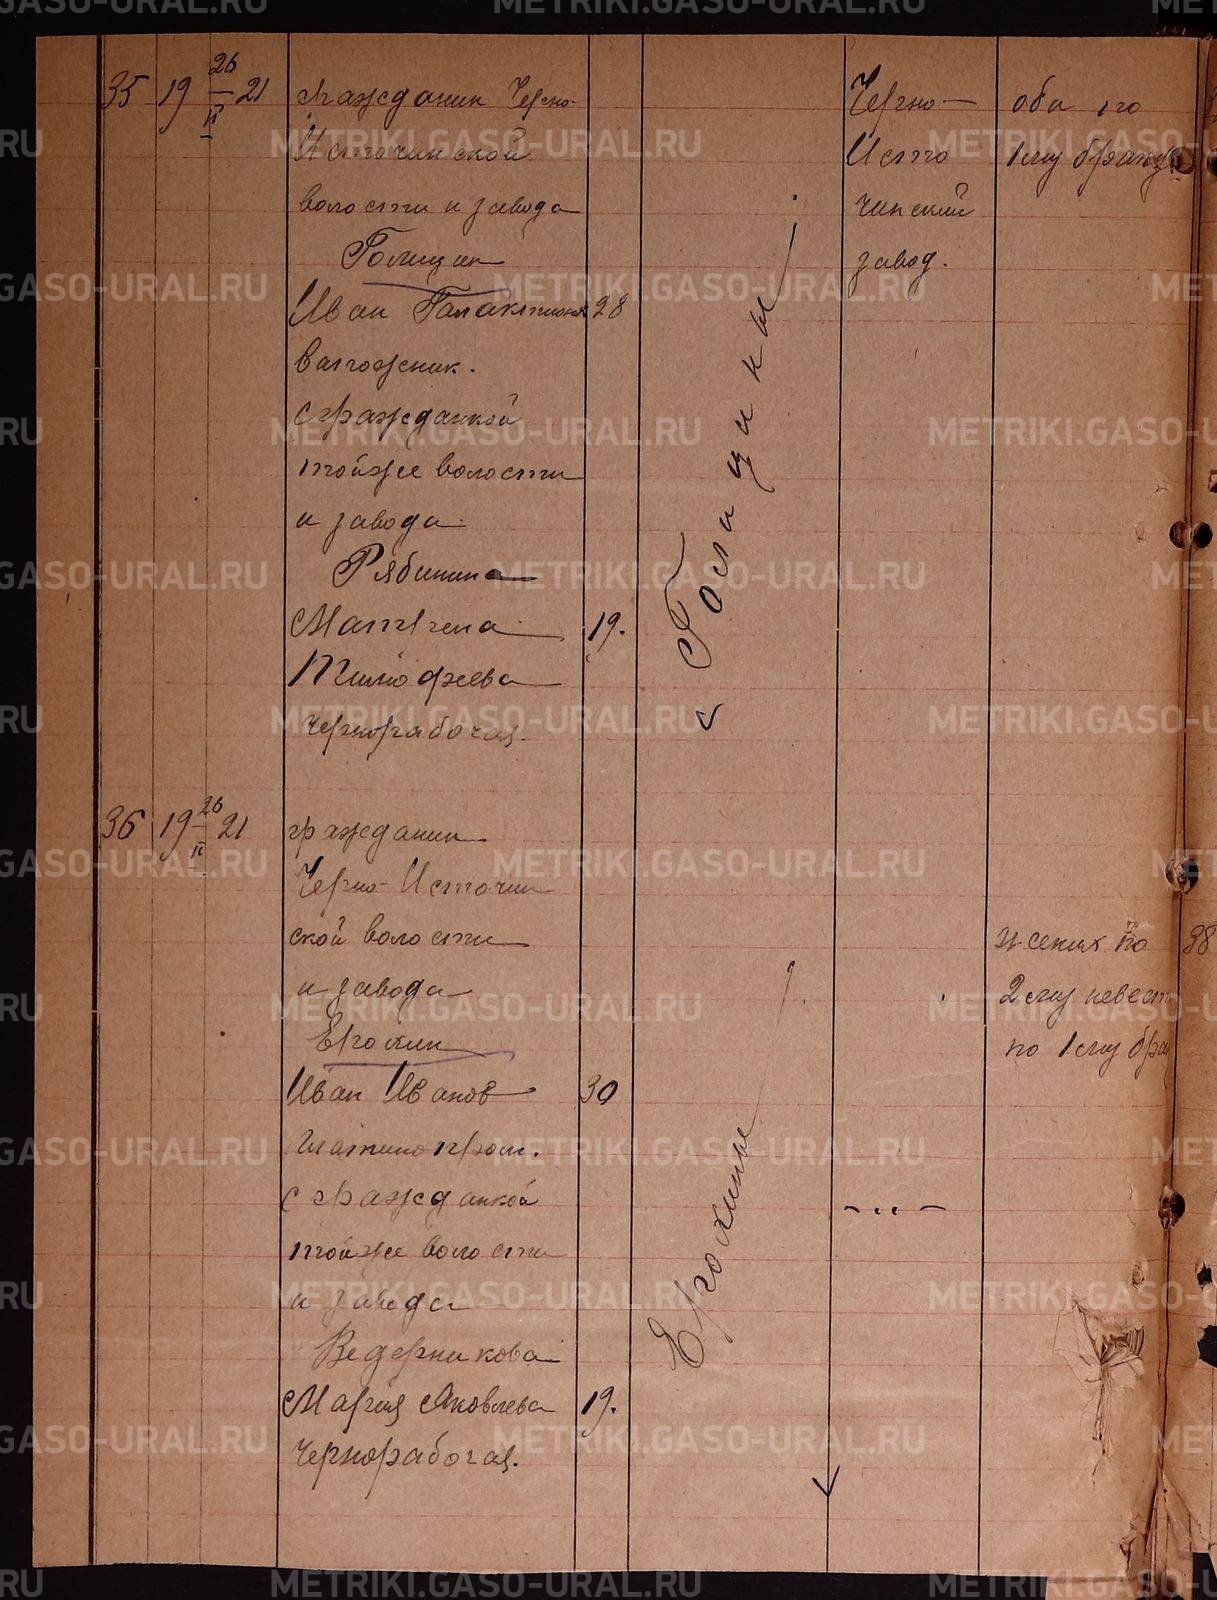 35 19 26/II 21 гражданин Черно-
Источинской
волости и завода
Голицин
Иван Галактионов 28
сгражданкой
тойже волости
и завода
Рябинина
Матрена 19.
Тимофеева
Чернорабочая.
Голицины
Черно-
Исто
чинский
завод.
оба по
1му браку
36 19 26/II 21 гражданин
Черно-Источин
ской волости
и завода
Ерохин
Иван Иванов 30
с гражданкой
тойже волости
и завода
Ведерникова
Мария Яковлева 19.
Чернорабочая.
Ерохины
-„-
жених по
2му невест
по 1му бра
38
METRIKI.GASO-URAL.RU